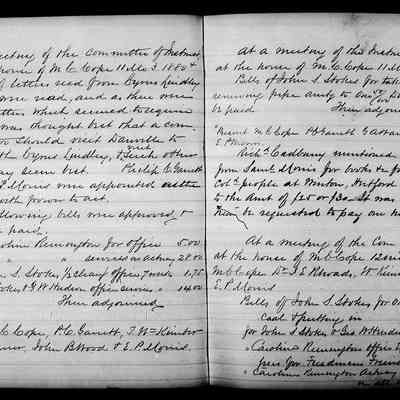 eeting of the committee of Instruct
house of M. C. Cope 11 Mo 3. 1880 +
of letters recd from Cyrus Lindley
were read, and as there were
tters which seemed to require
was thought best that a com-
should visit Danville to
the Cyrus Lindley, & such other
ay seem best. Philip C. Garrett
P. Morris were appointed either
both power to act.
llowing bills were approved &
paid.
oline Remington for office 5.00
" " services as actuary 25.00
n S. Stokes for cleang office, 7 weeks 1.75
okes & G W Hudson office services 14.00
Then adjourned
C. Cope, P. C. Garrett, T. Wm Kimber
John B Wood & E. P. Morris.
At a meeting of the Instruc
at the house of M. C. Cope 11 M
Bills of John S. Stokes for tak
removing paper amty to
be paid. Then adjourn
Present M C Cope P C Garrett
E. P. Morris.
Richd Cadbury mentioned
from Saml Morris for books to
Cold people at Winton, Hertford
to the amt of $25 or $30. It was
be requested to pay on
At a meeting of the Com
at the house of M C Cope 12 mo
M C Cope Dr J. E. Rhoads, W. Kim
E. P. Morris
Bills of John S. Stokes for
coal & putting in
for John S Stokes & Geo W Hudson
" Caroline Remington office
for Freedmens Friend
" Caroline Remington Actuary